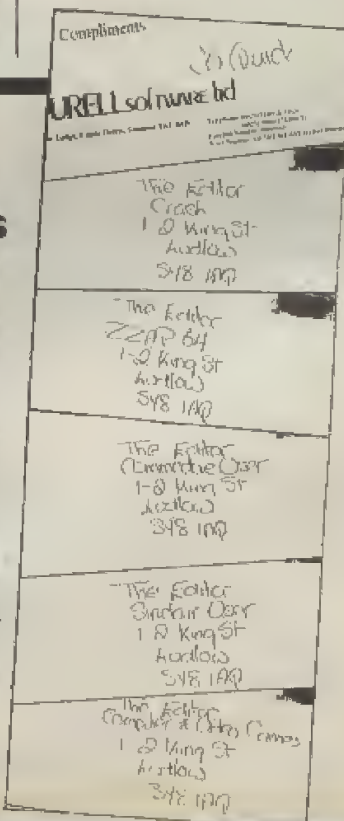 Compliments
URELL software ltd
The Editor
Crash
1 2 King St
Ludlow
SY8 1AQ
The Editor
ZZAP 64
1-2 King St
Ludlow
SY8 1AQ
The Editor
Commodore User
1-2 King St
Ludlow
SY8 1AQ
The Editor
Sinclair User
1 2 King St
Ludlow
SY8 1AQ
The Editor
Computer & Video Games
1 2 King St
Ludlow
SY8 1AQ